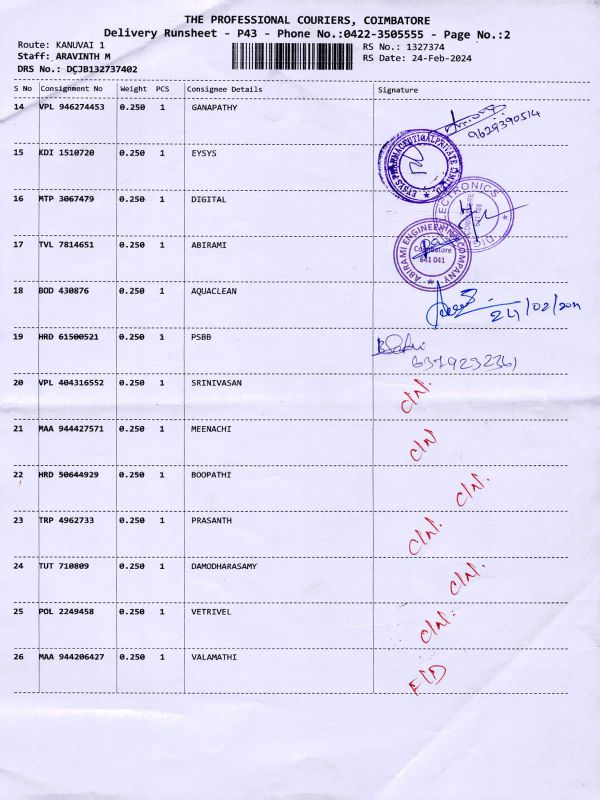 THE PROFESSIONAL COURIERS, COIMBATORE
Delivery Runsheet - P43 - Phone No.:0422-3505555 - Page No.:2
Route: KANUVAI 1
Staff: ARAVINTH M
DRS No.: DCJB132737402
RS No.: 1327374
RS Date: 24-Feb-2024
S No Consignment No Weight PCS Consignee Details Signature
14 VPL 946274453 0.250 1 GANAPATHY
9629390514
15 KDI 1510720 0.250 1 EYSYS
EYSYS PHARMACEUTICAL PRIVATE LIMITED
16 MTP 3067479 0.250 1 DIGITAL
17 TVL 7814651 0.250 1 ABIRAMI
ABIRAMI ENGINEERING COMPANY
Coimbatore
641 041
18 BOD 430876 0.250 1 AQUACLEAN
19 HRD 61500521 0.250 1 PSBB
6379232361
20 VPL 404316552 0.250 1 SRINIVASAN
21 MAA 944427571 0.250 1 MEENACHI
22 HRD 50644929 0.250 1 BOOPATHI
23 TRP 4962733 0.250 1 PRASANTH
24 TUT 710809 0.250 1 DAMODHARASAMY
25 POL 2249458 0.250 1 VETRIVEL
26 MAA 944206427 0.250 1 VALAMATHI